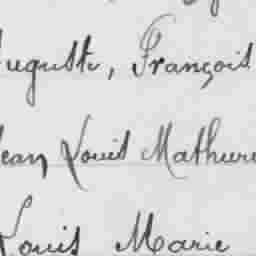 Auguste, François
Jean Louis Mathurin
Louis Marie